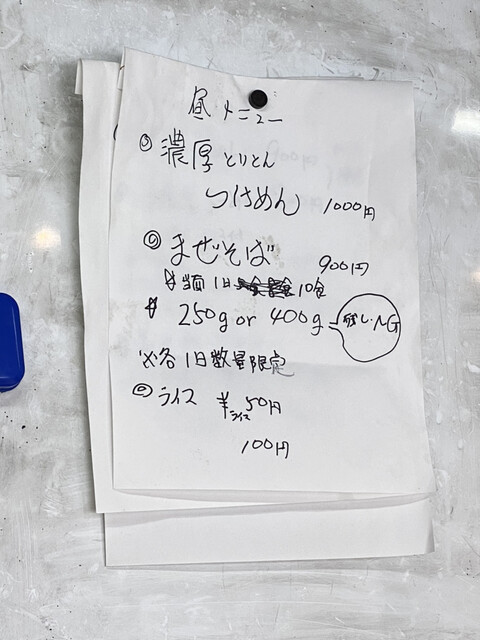 昼メニュー
◎ 濃厚とりとん
つけめん 1000円
◎ まぜそば 900円
※当面1日 10食
※ 250g or 400g 残しNG
※各1日数量限定
◎ ライス ¥50円
ライス
100円